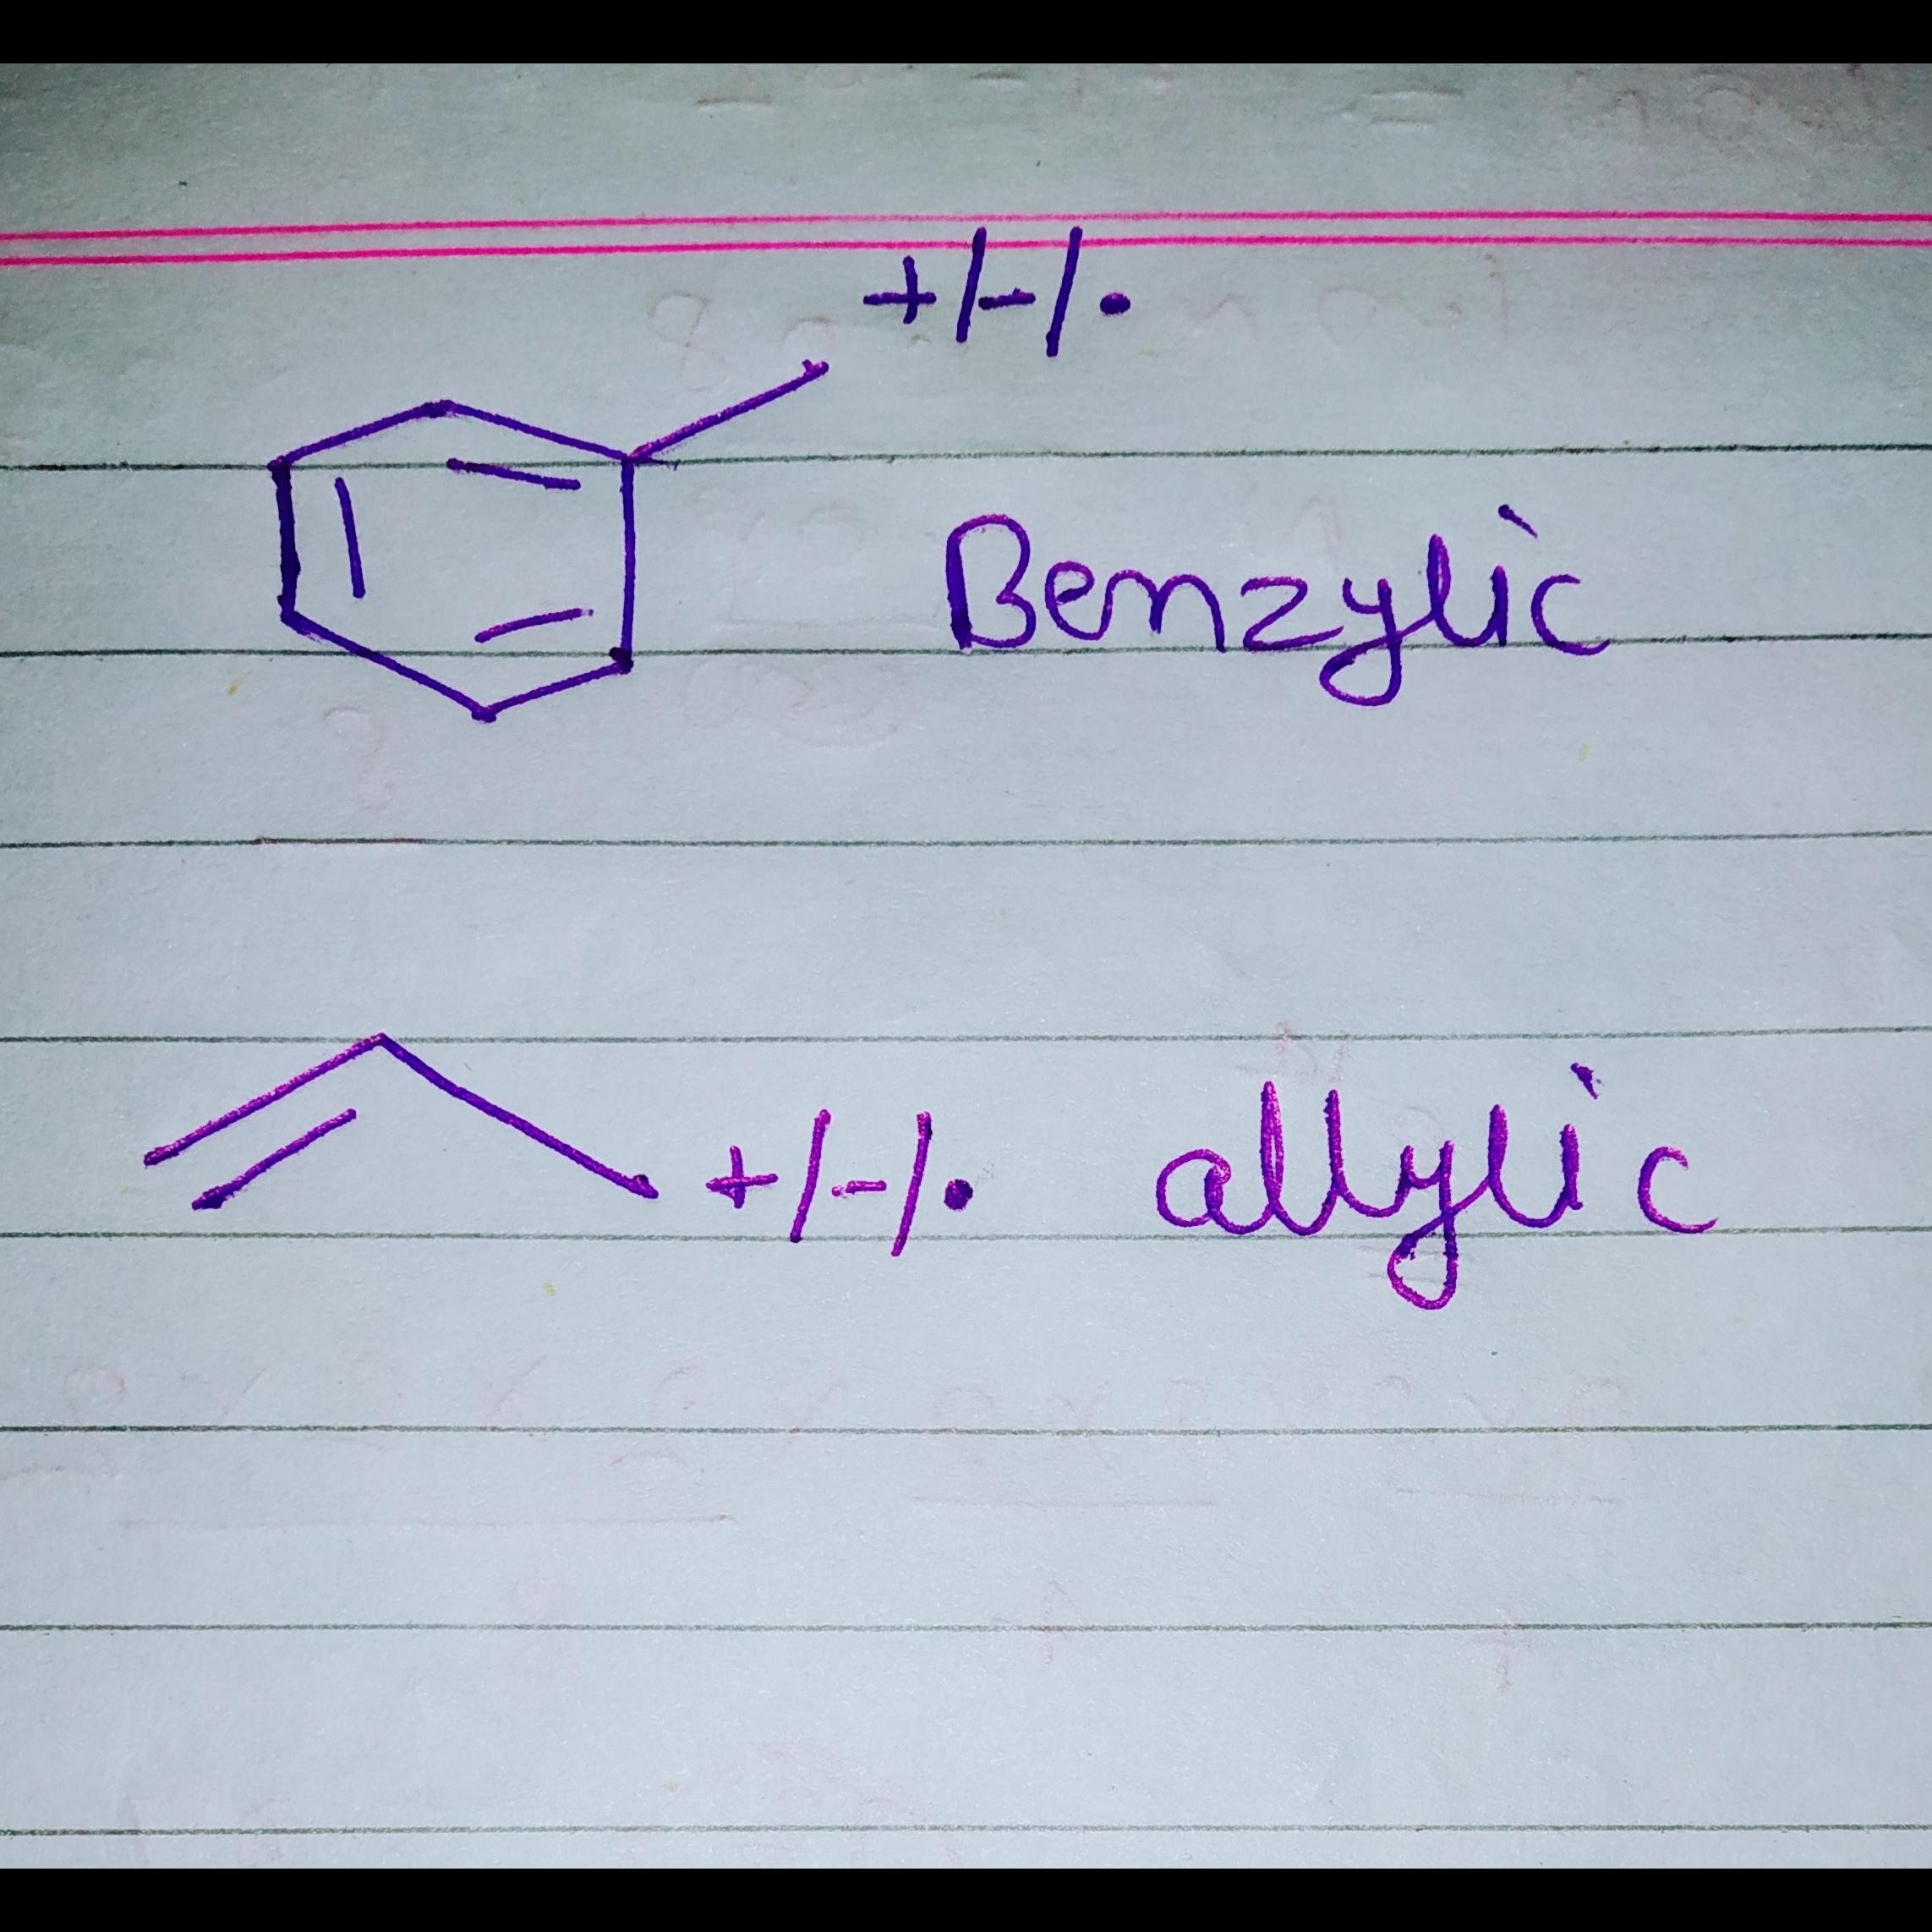 +/-/•
Benzylic
+/-/• allylic